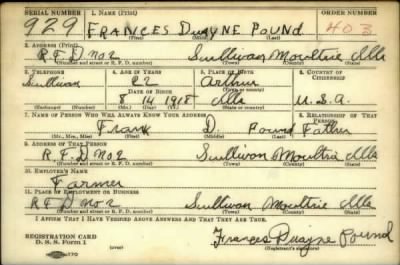 SERIAL NUMBER 1. NAME (Print) ORDER NUMBER
929 FRANCES DWAYNE POUND 403
(First) (Middle) (Last)
2. ADDRESS (Print)
R F D NO 2 Sullivan Moultrie Ills
(Number and street or R. F. D. number) (Town) (County) (State)
3. TELEPHONE 4. AGE IN YEARS 5. PLACE OF BIRTH 6. COUNTRY OF CITIZENSHIP
Sullivan 22 Arthur
DATE OF BIRTH
8 14 1918 Ills U.S.A.
(Mo.) (Day) (Yr.) (State or country)
7. NAME OF PERSON WHO WILL ALWAYS KNOW YOUR ADDRESS 8. RELATIONSHIP OF THAT PERSON
Frank D. Pound Father
(Mr., Mrs., Miss) (First) (Middle) (Last)
9. ADDRESS OF THAT PERSON
R.F.D NO 2 Sullivan Moultrie Ills
(Number and street or R. F. D. number) (Town) (County) (State)
10. EMPLOYER'S NAME
Farmer
11. PLACE OF EMPLOYMENT OR BUSINESS
R F D NO 2 Sullivan Moultrie Ills
(Number and street or R. F. D. number) (Town) (County) (State)
I AFFIRM THAT I HAVE VERIFIED ABOVE ANSWERS AND THAT THEY ARE TRUE.
REGISTRATION CARD
D. S. S. Form 1 (over) Frances Dwayne Pound
(Registrant's signature)